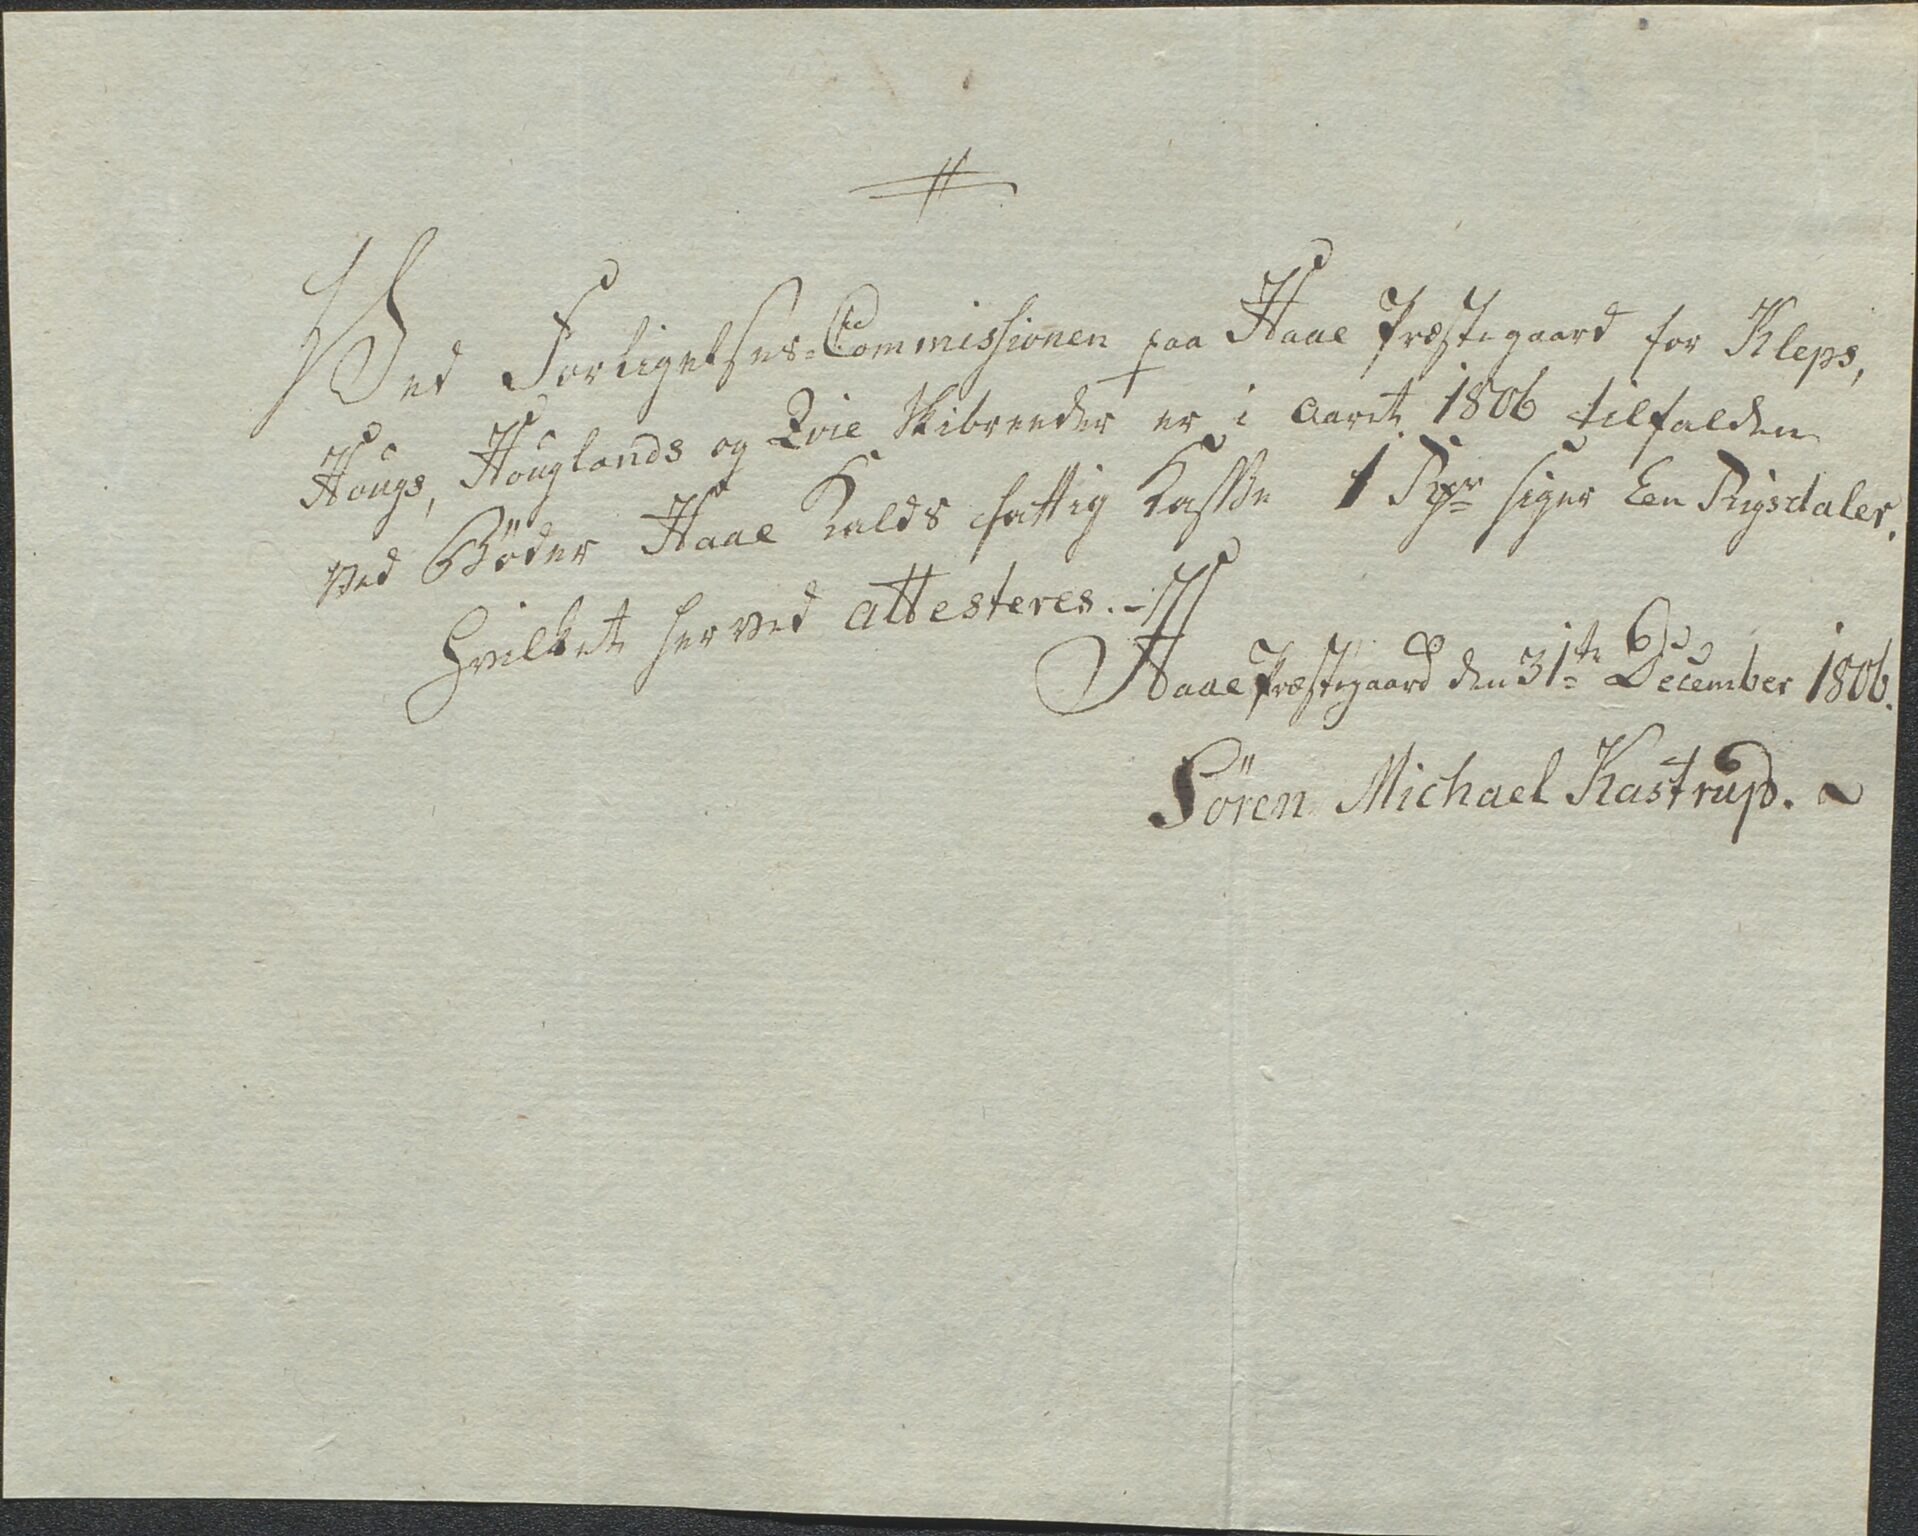 Ved Forligelses-Commissionen paa Haae Præstegaard for Kleps,
Hougs, Houglands og Qvie Skibreeder er i Aaret 1806 tilfalden
ved Böder Haae Kalds fattig Kasse 1 Rdr siger Een Rigsdaler.
Hvilket herved attesteres. -
Haae Præstegaard den 31te December 1806.
Sören Michael Kastrup.